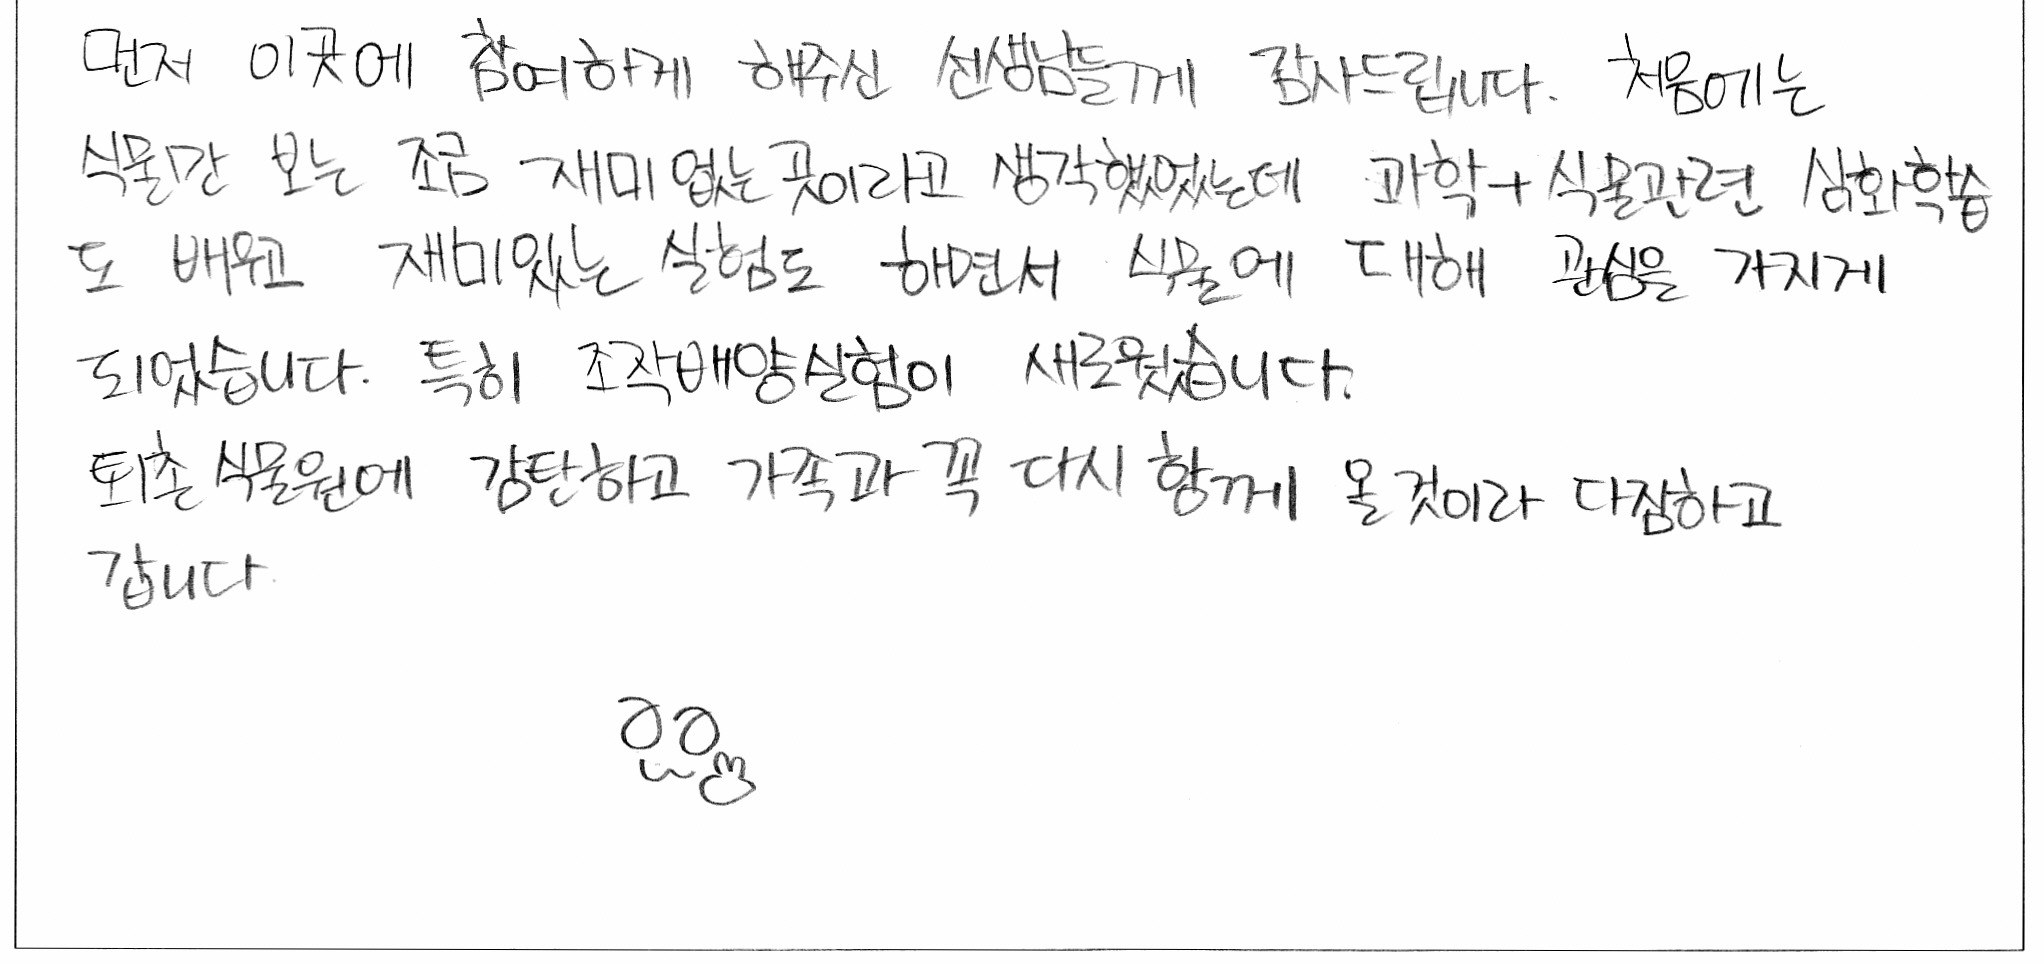 먼저 이곳에 참여하게 해주신 선생님들께 감사드립니다. 처음에는
식물만 보는 조금 재미없는곳이라고 생각했었는데 과학+식물관련 심화학습
도 배우고 재미있는 실험도 하면서 식물에 대해 관심을 가지게
되었습니다. 특히 조직배양실험이 새로웠습니다.
퇴촌식물원에 감탄하고 가족과 꼭 다시 함께 올것이라 다짐하고
갑니다.